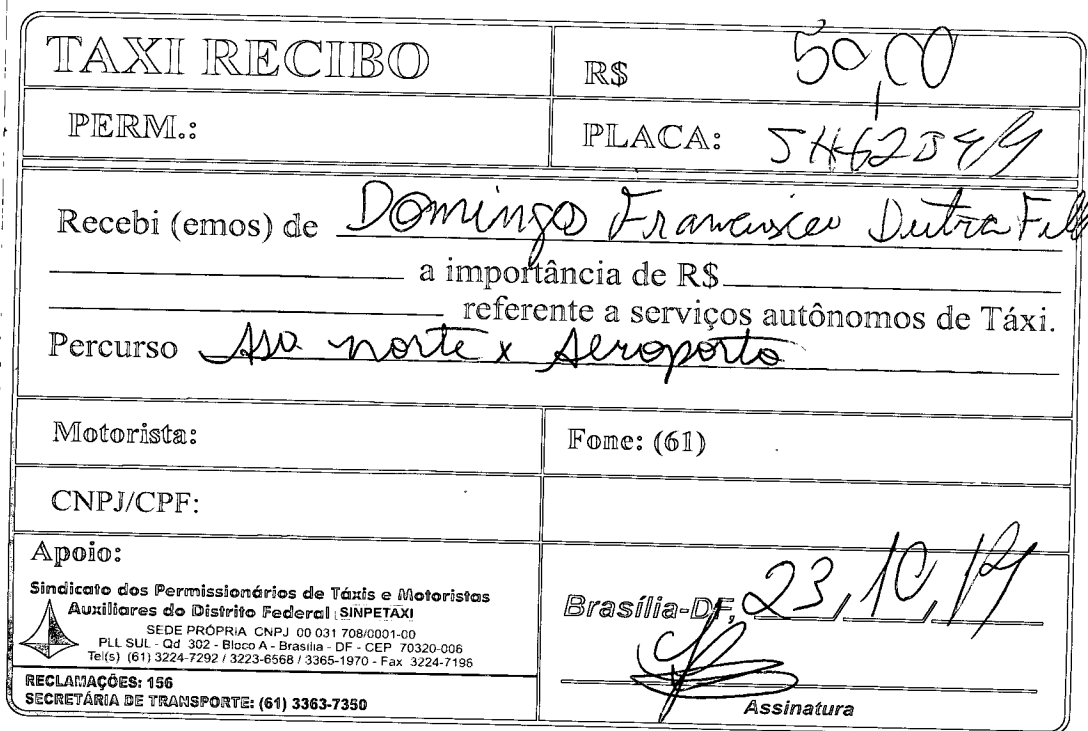 TAXI RECIBO
R$ 50,00
PERM.:
PLACA:
Recebi (emos) de Domingo Francisco Dutra Filho
a importância de R$
referente a serviços autônomos de Táxi.
Percurso Asa norte x Aeroporto
Motorista:
Fone: (61)
CNPJ/CPF:
Apoio:
Sindicato dos Permissionários de Táxis e Motoristas
Auxiliares do Distrito Federal SINPETAXI
SEDE PRÓPRIA CNPJ 00 031 708/0001-00
PLL SUL - Qd 302 - Bloco A - Brasília - DF - CEP 70320-006
Tel(s) (61) 3224-7292 / 3223-6568 / 3365-1970 - Fax 3224-7196
RECLAMAÇÕES: 156
SECRETÁRIA DE TRANSPORTE: (61) 3363-7350
Brasília-DF, 23, 10,
Assinatura